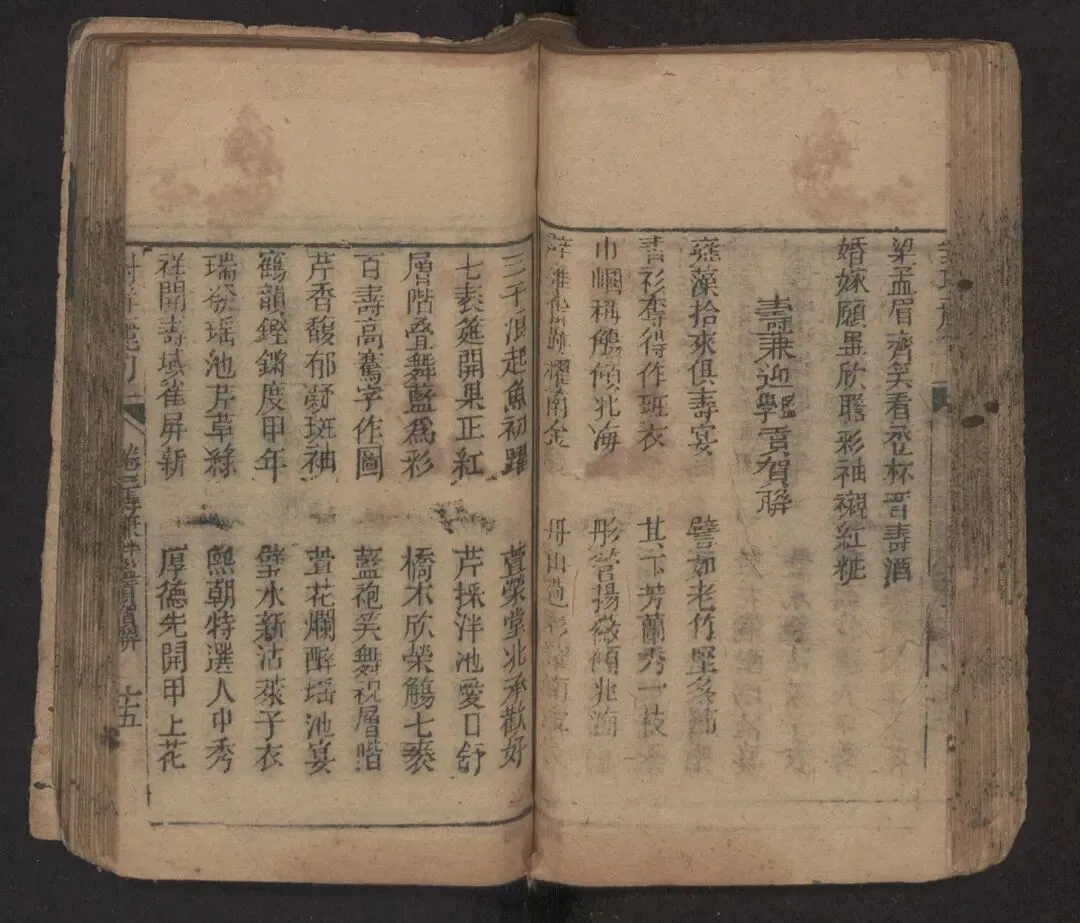 梁孟眉齊笑看登杯晉壽酒
婚嫁願畢欣瞻彩袖襯紅粧
壽兼迎學貢賀聯
藻拾來俱壽宴 譬如老竹堅多
青衫奪得作班衣 其下芳蘭秀一枝
巾幗稱觴傾北海 彤管揚徽
耀南金 丹山
三千浪起魚初躍 萱榮堂北承歡好
七袠筵開果正紅 芹採泮池愛日舒
層階叠舞藍為彩 橋木欣榮觴七袠
百壽高騫字作圖 藍袍笑舞祝層階
芹香馥郁凝斑袖 萱花爛醉瑶池宴
鶴韻鏗鏘度甲年 璧水新沾萊子衣
瑞凝瑶池芹草綠 熙朝特選人中秀
祥開壽域雀屏新 厚德先開甲上花
卷三壽兼 貢賀聯 十五